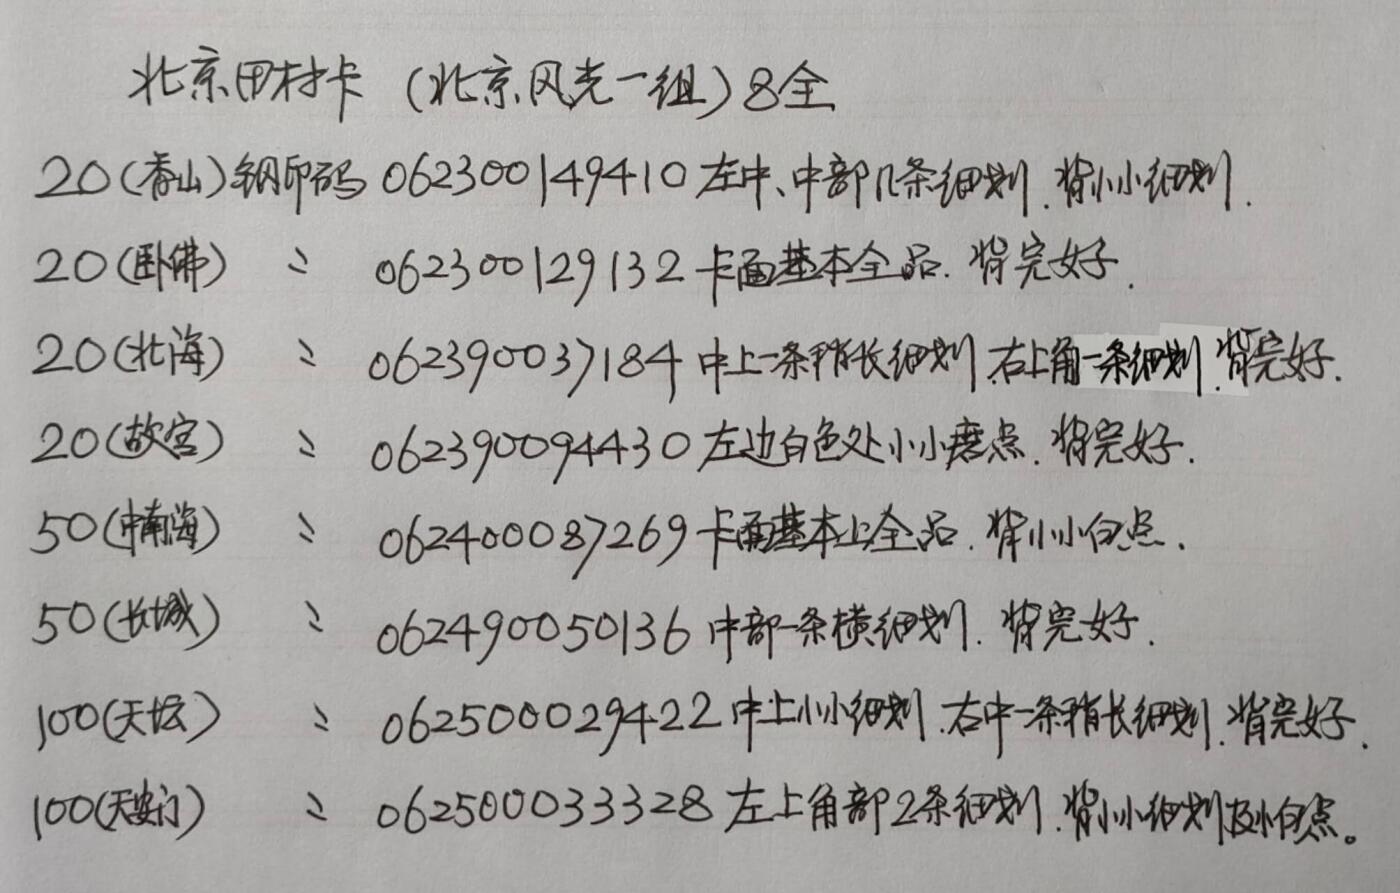 北京田村卡（北京风光一组）8全
20（香山）钢印码 062300149410 左中、中部几条细划.背小小细划.
20（卧佛） 〻 062300129132 卡面基本全品.背完好.
20（北海） 〻 062390037184 中上一条稍长细划.右上角一条细划.背完好.
20（故宫） 〻 062390094430 左边白色处小小磨点.背完好.
50（中南海） 〻 062400087269 卡面基本上全品.背小小白点.
50（长城） 〻 062490050136 中部一条横细划.背完好.
100（天坛） 〻 062500029422 中上小小细划.右中一条稍长细划.背完好.
100（天安门） 〻 062500033328 左上角部2条细划.背小小细划及小白点。